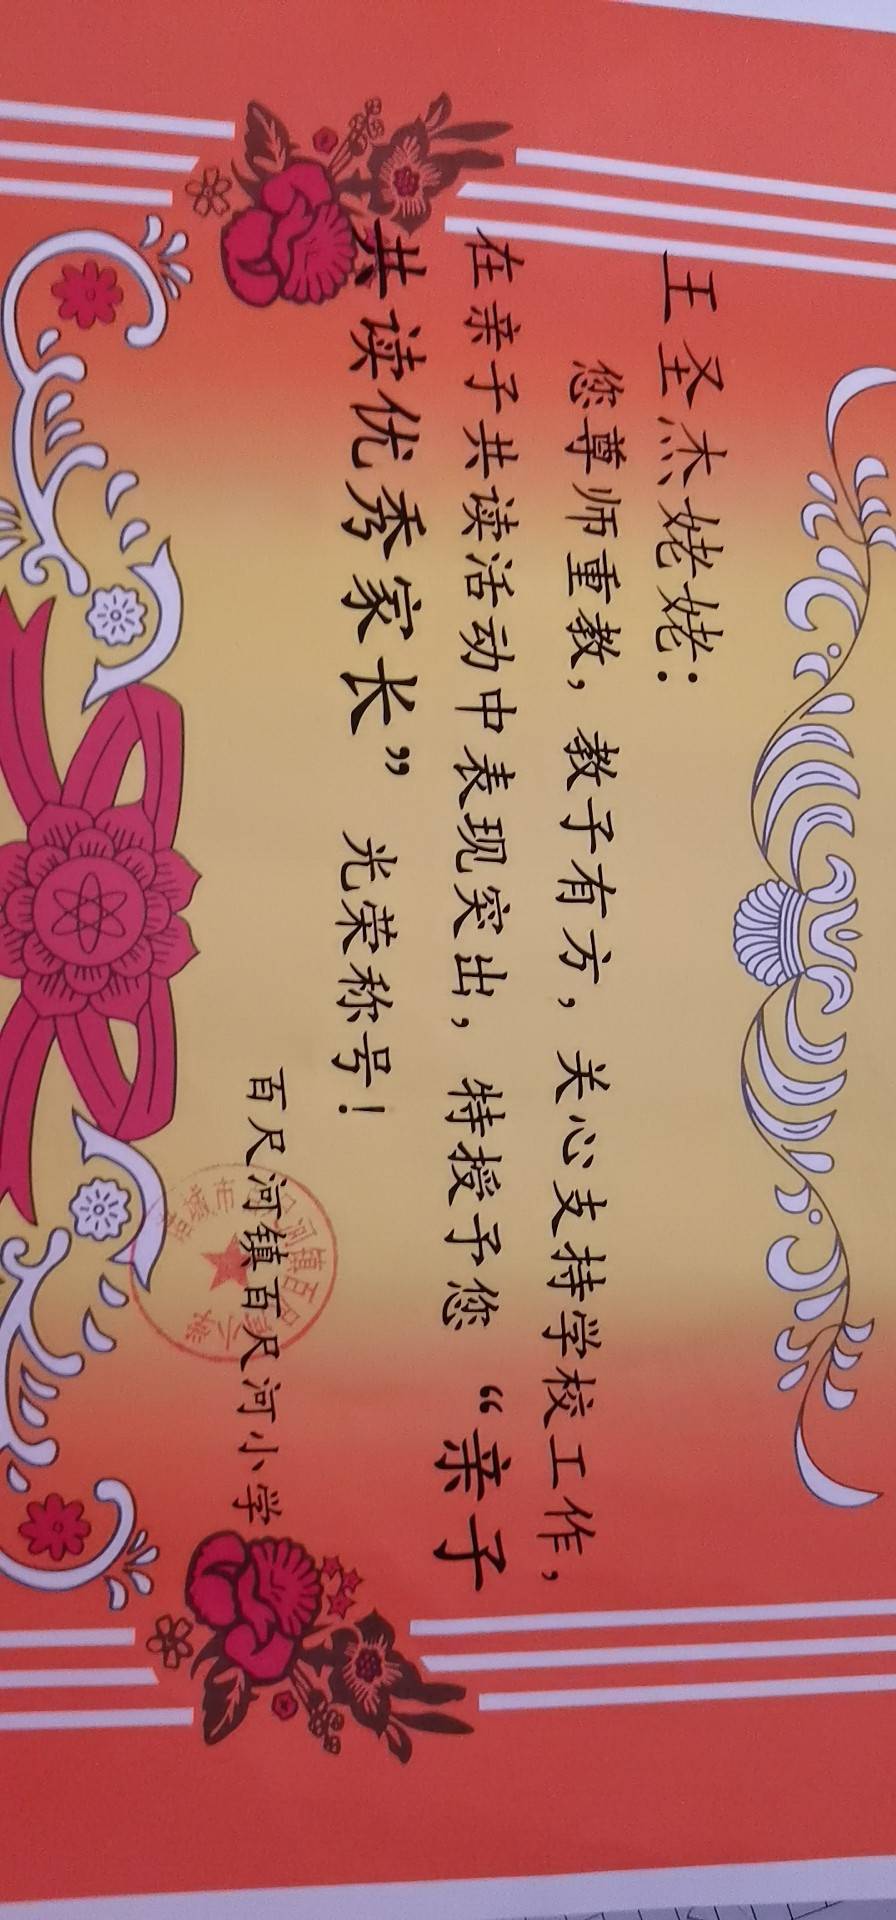 王圣杰姥姥：
您尊师重教，教子有方，关心支持学校工作，
在亲子共读活动中表现突出，特授予您“亲子
共读优秀家长”光荣称号！
百尺河镇百尺河小学